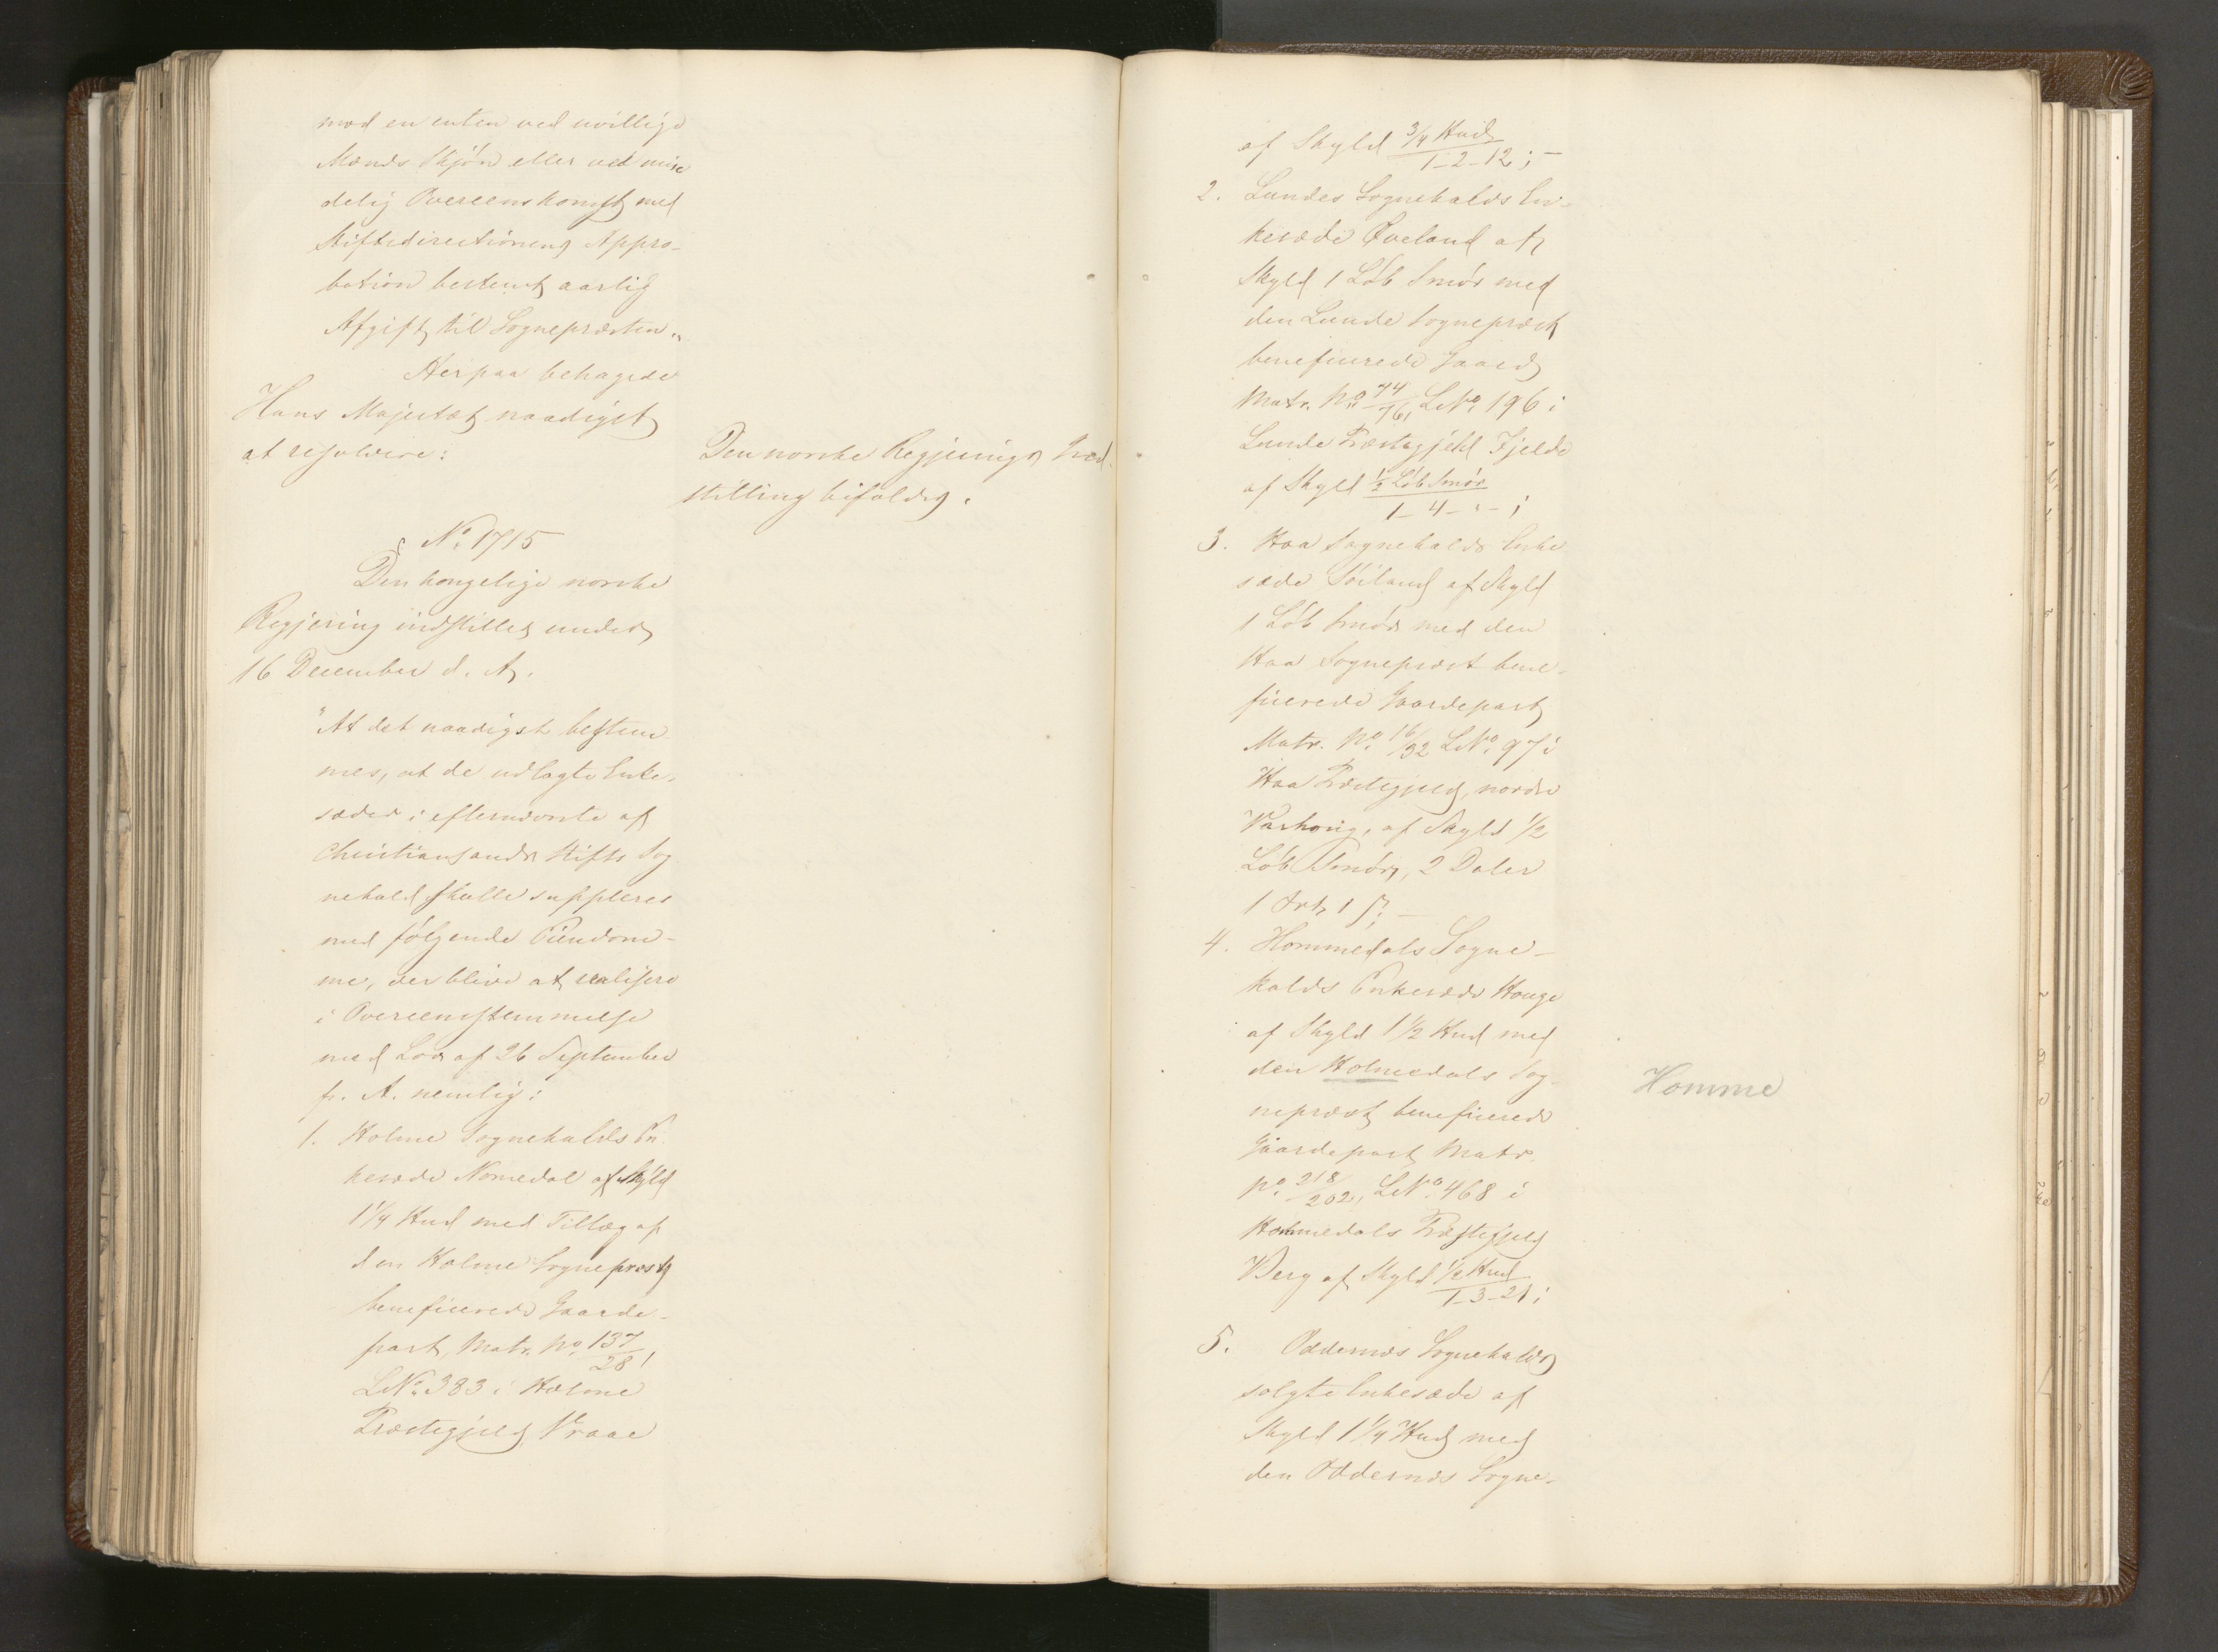 mod en enten ved uvillige
Mænds Skjøn eller ved min-
delig Overeenskomst med
Stiftsdirectionens Appro-
bation bestemt aarlig
Afgift til Sognepræsten."
Herpaa behagede
Hans Majestæt naadigst
at resolvere:
Den norske Regjerings Ind-
stilling bifaldes.
No. 1715
Den kongelige norske
Regjering indstiller under
16 December d. A.
"At det naadigst bestem-
mes, at de udlagte Enke-
sæder i efternævnte af
Christiansands Stifts Sog
nekald skulle suppleres
med følgende Eiendom-
me, der blive at realisere
i Overeensstemmelse
med Lov af 26 September
f. A. nemlig:
1. Holme Sognekalds En-
kesæde Nomedal af Skyld
1 1/4 Hud med Tillæg af
den Holme Sognepræst
beneficerede Gaarde-
part, Matr. No. 137/28,
LNo. 383 i Holme
Præstegjeld Vraae
af Skyld 3/4 Hud / 1-2-12; -
2. Lundes Sognekalds En-
kesæde Øveland af
Skyld 1 Løb Smør med
den Lunde Sognepræst
beneficerede Gaard
Matr. No. 74/76, LNo. 196 i
Lunde Præstegjeld Fjelde
af Skyld 1/2 Løb Smør / 1-4-"-;
3. Haa Sognekalds Enke
sæde Söiland af Skyld
1 Løb Smør med den
Haa Sognepræst bene-
ficerede Gaardepart
Matr. No. 16/32 LNo. 97 i
Haa Præstegjeld, nordre
Varhoug, af Skyld 1/2
Løb Smør, 2 Daler
1 Ort 1 ß; -
4. Hommedals Sogne-
kalds Enkesæde Houge
af Skyld 1 1/2 Hud med
den Holmedals Sog-
nepræst beneficerede
Gaardepart Matr.
No. 218/202, LNo. 468 i
Hommedals Præstegjeld
Berg af Skyld 1/2 Hud / 1-3-21;
Homme
5. Oddernæs Sognekalds
solgte Enkesæde af
Skyld 1 1/4 Hud med
den Oddernæs Sogne-